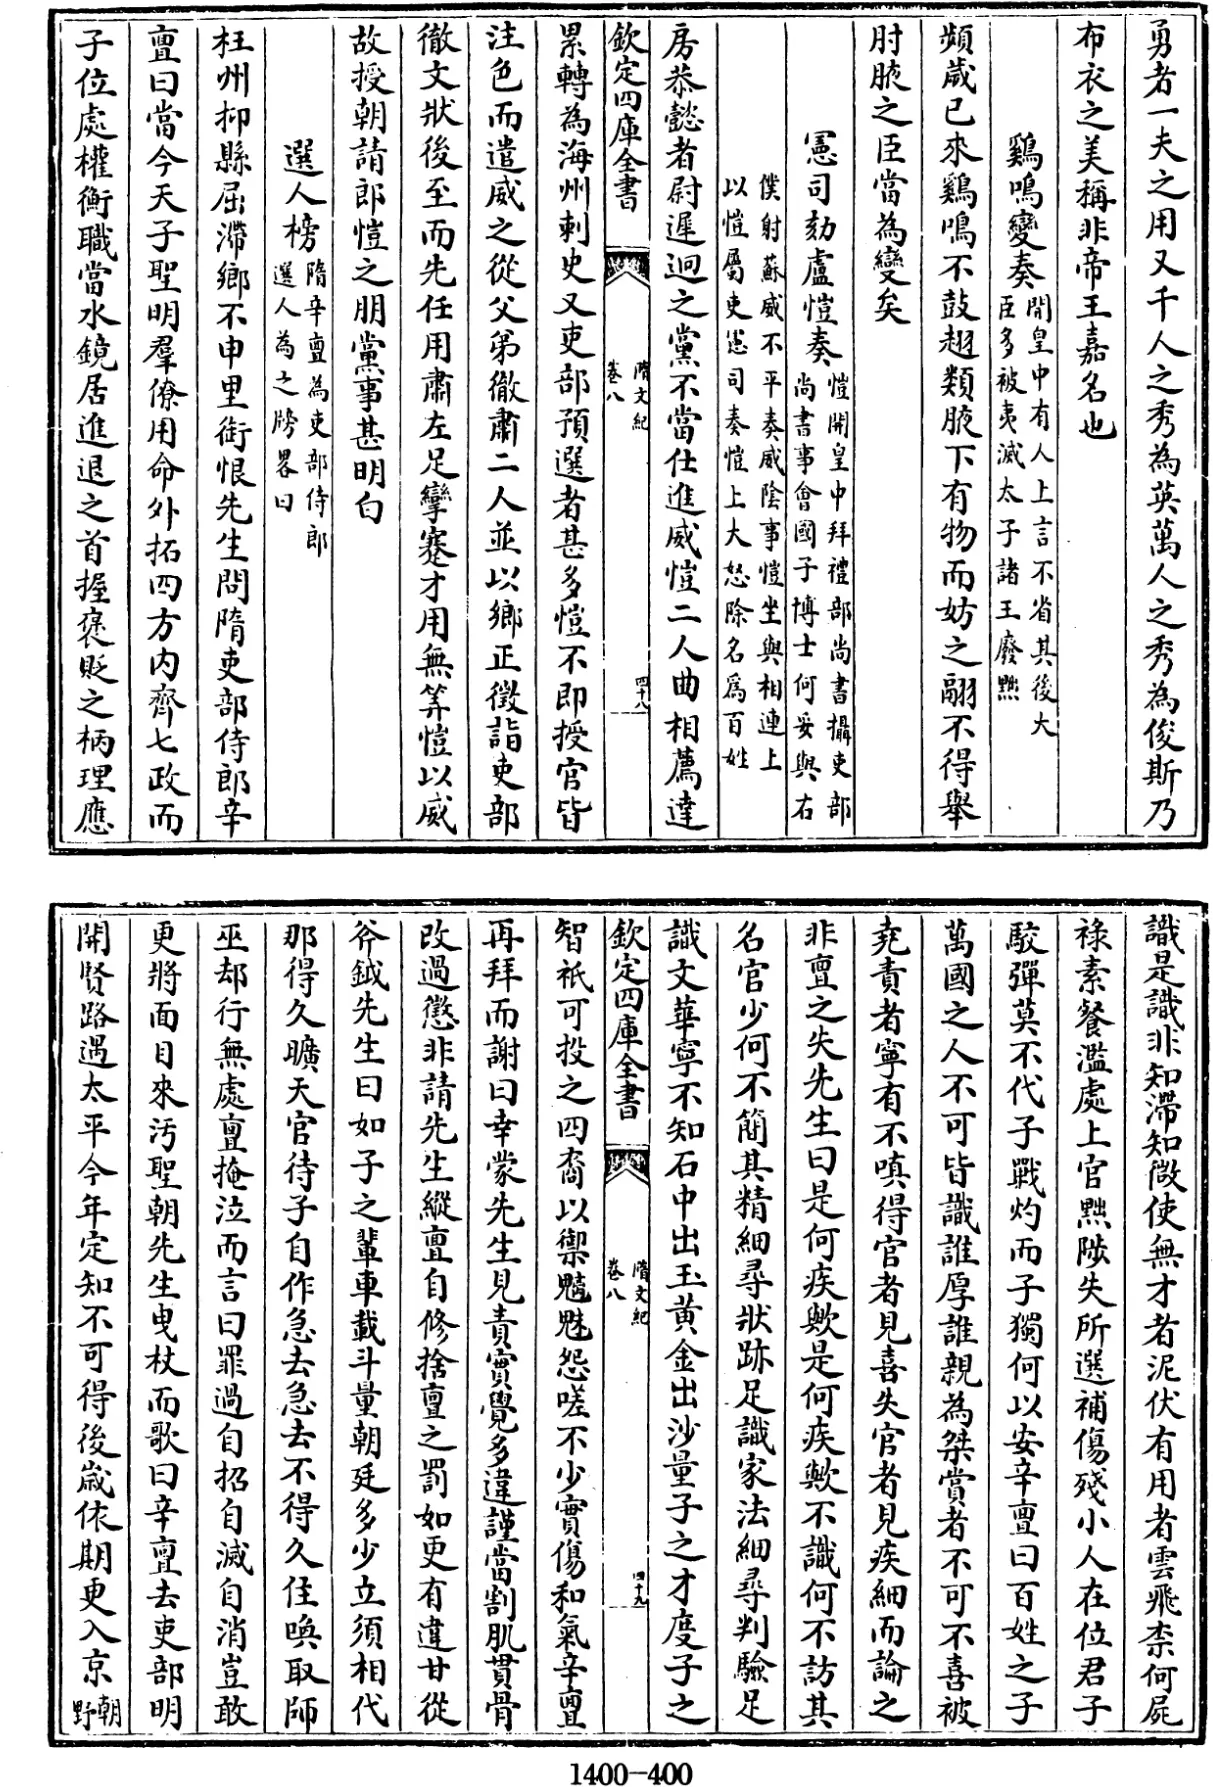 勇者一夫之用又千人之秀為英萬人之秀為俊斯乃
布衣之美稱非帝王嘉名也
鷄鳴變奏開皇中有人上言不省其後大
臣多被夷滅太子諸王廢黜
頻歲已來鷄鳴不鼓翅類腋下有物而妨之翮不得舉
肘腋之臣當為變矣
憲司劾盧愷奏愷開皇中拜禮部尚書攝吏部
尚書事會國子博士何妥與右
僕射蘇威不平奏威陰事愷坐與相連上
以愷屬吏憲司奏愷上大怒除名爲百姓
房恭懿者尉遲迥之黨不當仕進威愷二人曲相薦達
欽定四庫全書
隋文紀
卷八
四十八
累轉為海州刺史又吏部預選者甚多愷不即授官皆
注色而遣威之從父弟徹肅二人並以鄉正徵詣吏部
徹文狀後至而先任用肅左足攣蹇才用無筭愷以威
故授朝請郎愷之朋黨事甚明白
選人榜隋辛亶為吏部侍郎
選人為之牓畧曰
枉州抑縣屈滯鄉不申里銜恨先生問隋吏部侍郎辛
亶曰當今天子聖明羣僚用命外拓四方内齊七政而
子位處權衡職當水鏡居進退之首握褒貶之柄理應
識是識非知滯知微使無才者泥伏有用者雲飛柰何屍
祿素餐濫處上官黜陟失所選補傷殘小人在位君子
駮彈莫不代子戰灼而子獨何以安辛亶曰百姓之子
萬國之人不可皆識誰厚誰親為桀賞者不可不喜被
堯責者寧有不嗔得官者見喜失官者見疾細而論之
非亶之失先生曰是何疾歟是何疾歟不識何不訪其
名官少何不簡其精細尋狀跡足識家法細尋判驗足
識文華寧不知石中出玉黄金出沙量子之才度子之
欽定四庫全書
隋文紀
卷八
四十九
智祇可投之四裔以禦魑魅怨嗟不少實傷和氣辛亶
再拜而謝曰幸蒙先生見責實覺多違謹當割肌貫骨
改過懲非請先生縱亶自修捨亶之罰如更有違甘從
斧鉞先生曰如子之輩車載斗量朝廷多少立須相代
那得久曠天官待子自作急去急去不得久住喚取師
巫却行無處亶掩泣而言曰罪過自招自滅自消豈敢
更將面目來汚聖朝先生曳杖而歌曰辛亶去吏部明
開賢路遇太平今年定知不可得後歲依期更入京朝
野
1400-400